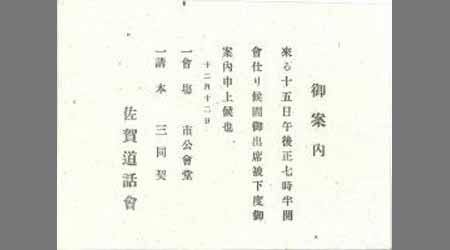 御案内
来る十五日午後正七時半開
會仕り候間御出席被下度御
案内申上候也
十二月十二日
一會場 市公會堂
一請本 三同契
佐賀道話會